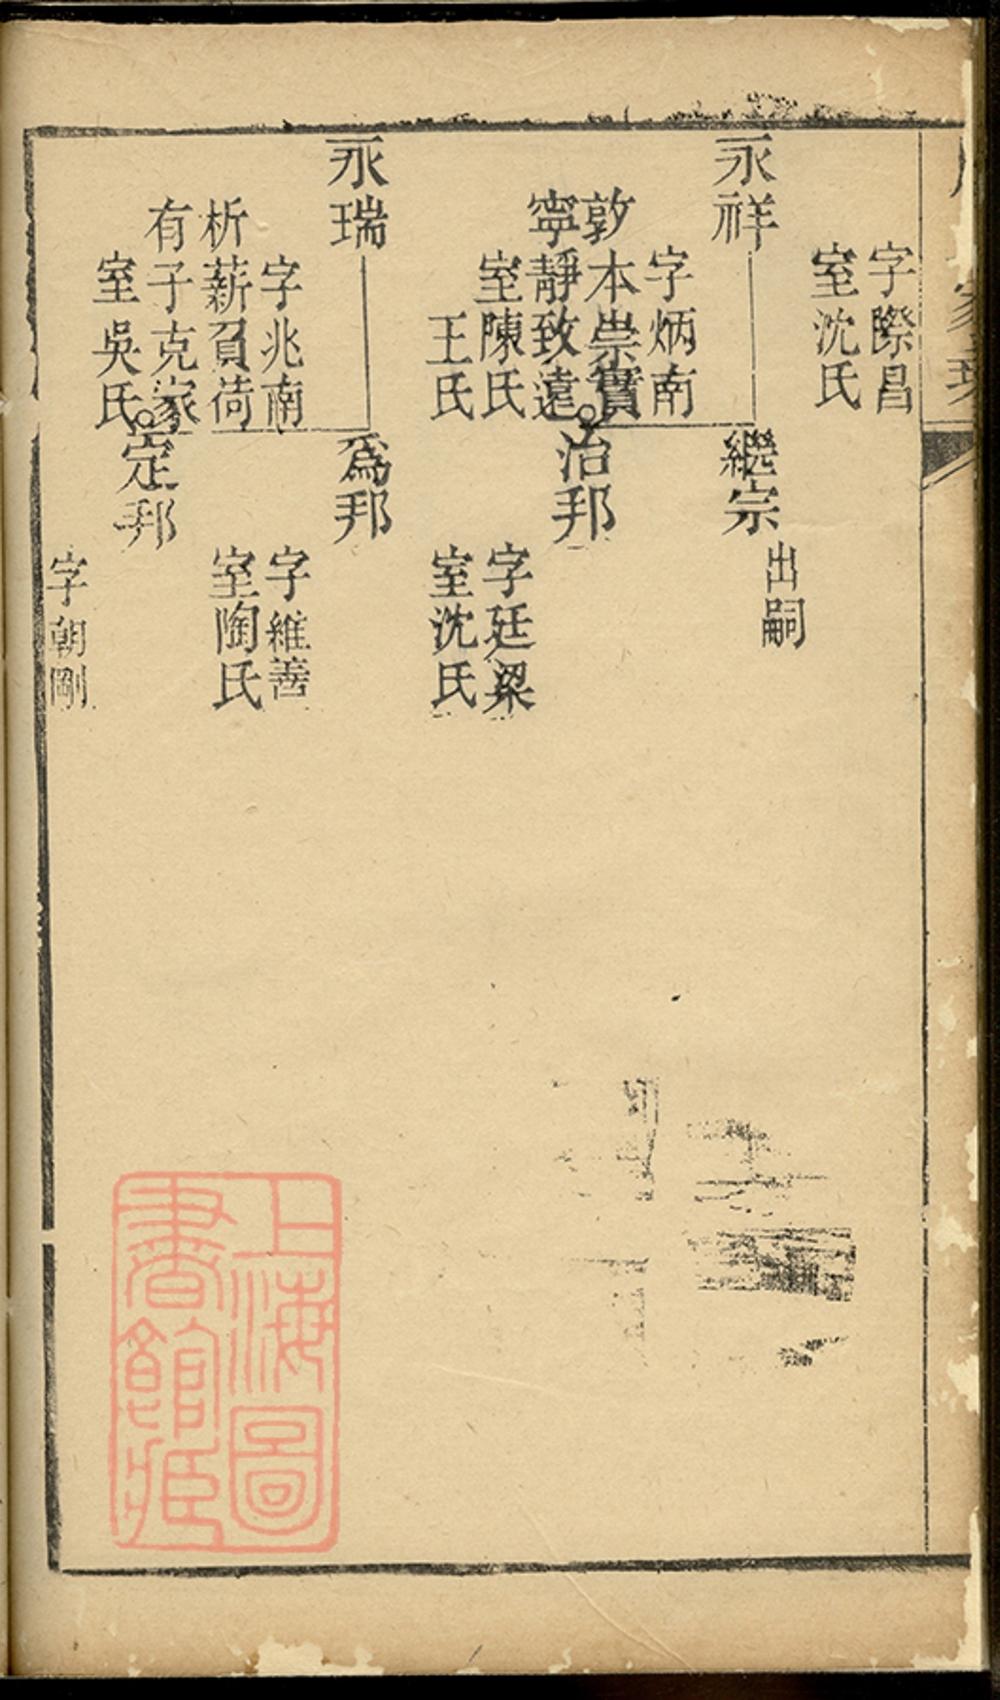 字際昌
室沈氏
永祥
字炳南
敦本崇實
寧靜致遠
室陳氏
王氏
繼宗
出嗣
治邦
字廷梁
室沈氏
永瑞
字兆南
析薪負荷
有子克家
室吳氏
爲邦
字維善
室陶氏
定邦
字朝剛
上海圖
書館藏